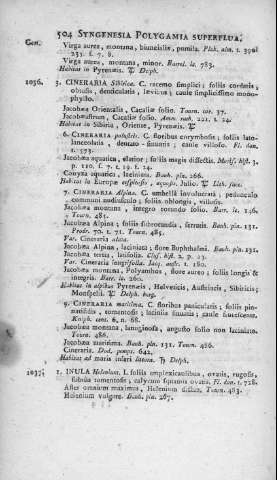 504 SYNGENESIA POLYGAMIA SUPERFLUA.
Gen.
Virga aurea, montana, biuncialis, pumila. Pluk. alm. t.
235. f. 7. 8.
Virga aurea, montana, minor. Barrel. ic. 783.
Habitat in Pyrenæis. Delph.
1036. 3. CINERARIA Sibirica. C. racemo simplici; foliis cordatis,
obtusis, denticulatis, lævibus; caule simplicissimo mono-
phyllo.
Jacobæa Orientalis, Cacaliæ folio. Tourn. cor. 37.
Jacobæastrum, Cacaliæ folio. Amm. ruth. 221. t. 24.
Habitat in Sibiria, Oriente, Pyrenæis.
6. CINERARIA palustris. C. floribus corymbosis; foliis lato-
lanceolatis, dentato-sinuatis; caule villoso. Fl. dan.
t. 573.
Jacobæa aquatica, elatior; foliis magis dissectis. Morif. hist. 3.
p. 110. f. 7. t. 19. f. 24.
Conyza aquatica, laciniata. Bauh. pin. 266.
Habitat in Europæ Julio.
7. CINERARIA Alpina. C. umbella involucrata; pedunculo
communi nudiusculo; foliis oblongis, villosis.
Jacobæa montana, integro rotundo folio. Barr. ic. 146.
Tourn. 485.
Jacobæa Alpina; foliis subrotundis, serratis. Bauh. pin. 131.
Prodr. 70. t. 71. Tourn. 485.
Var. Cineraria alata.
Jacobæa Alpina, laciniata; flore Buphthalmi. Bauh. pin. 131.
Jacobæa tertia, latifolia. Clus. hist. 2. p. 23.
Var. Cineraria integrifolia. Jacq. austr. t. 180.
Jacobæa montana, Polyanthos, flore aureo; foliis longis &
integris. Barr. ic. 266.
Habitat in alpibus Pyrenæis, Helveticis, Austriacis, Sibiricis;
Monspelii. Delph. burg.
9. CINERARIA maritima. C. floribus paniculatis; foliis pin-
natifidis, tomentosis; laciniis sinuatis; caule frutescente.
Kniph. cent. 6. n. 68.
Jacobæa montana, lanuginosa, angusto folio non laciniato.
Tourn. 486.
Jacobæa maritima. Bauh. pin. 131. Tourn. 486.
Cineraria. Dod. pempt. 642.
Habitat ad maris inferi latera. Delph.
1037. 1. INULA Helenium. I. foliis amplexicaulibus, ovatis, rugosis,
subtus tomentosis, calycum squamis ovatis. Fl. dan. t. 728.
Aster omnium maximus, Helenium dictus. Tourn. 483.
Helenium vulgare. Bauh. pin. 267.